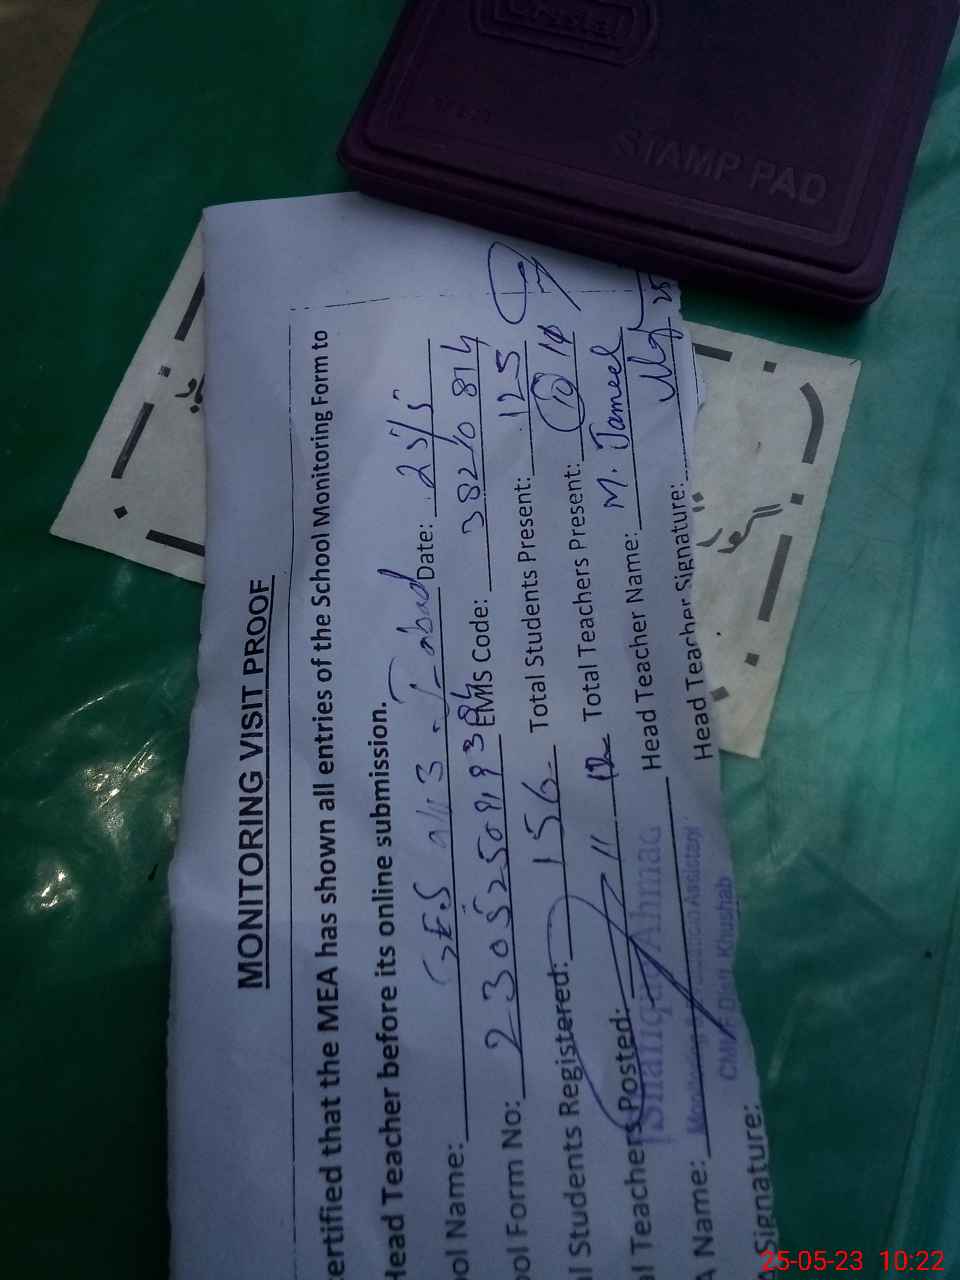 Crystal
STAMP PAD
MONITORING VISIT PROOF
ertified that the MEA has shown all entries of the School Monitoring Form to
Head Teacher before its online submission.
ool Name: GES Date: 25/5
ool Form No: EMIS Code: 38210814
al Students Registered: 156 Total Students Present: 125
al Teachers Posted: 11 12 Total Teachers Present: 10 10
A Name: Head Teacher Name: M. Jameel
Signature: Head Teacher Signature: 25
Ahmad
Monitoring
Khushab
گور
باد
25-05-23 10:22